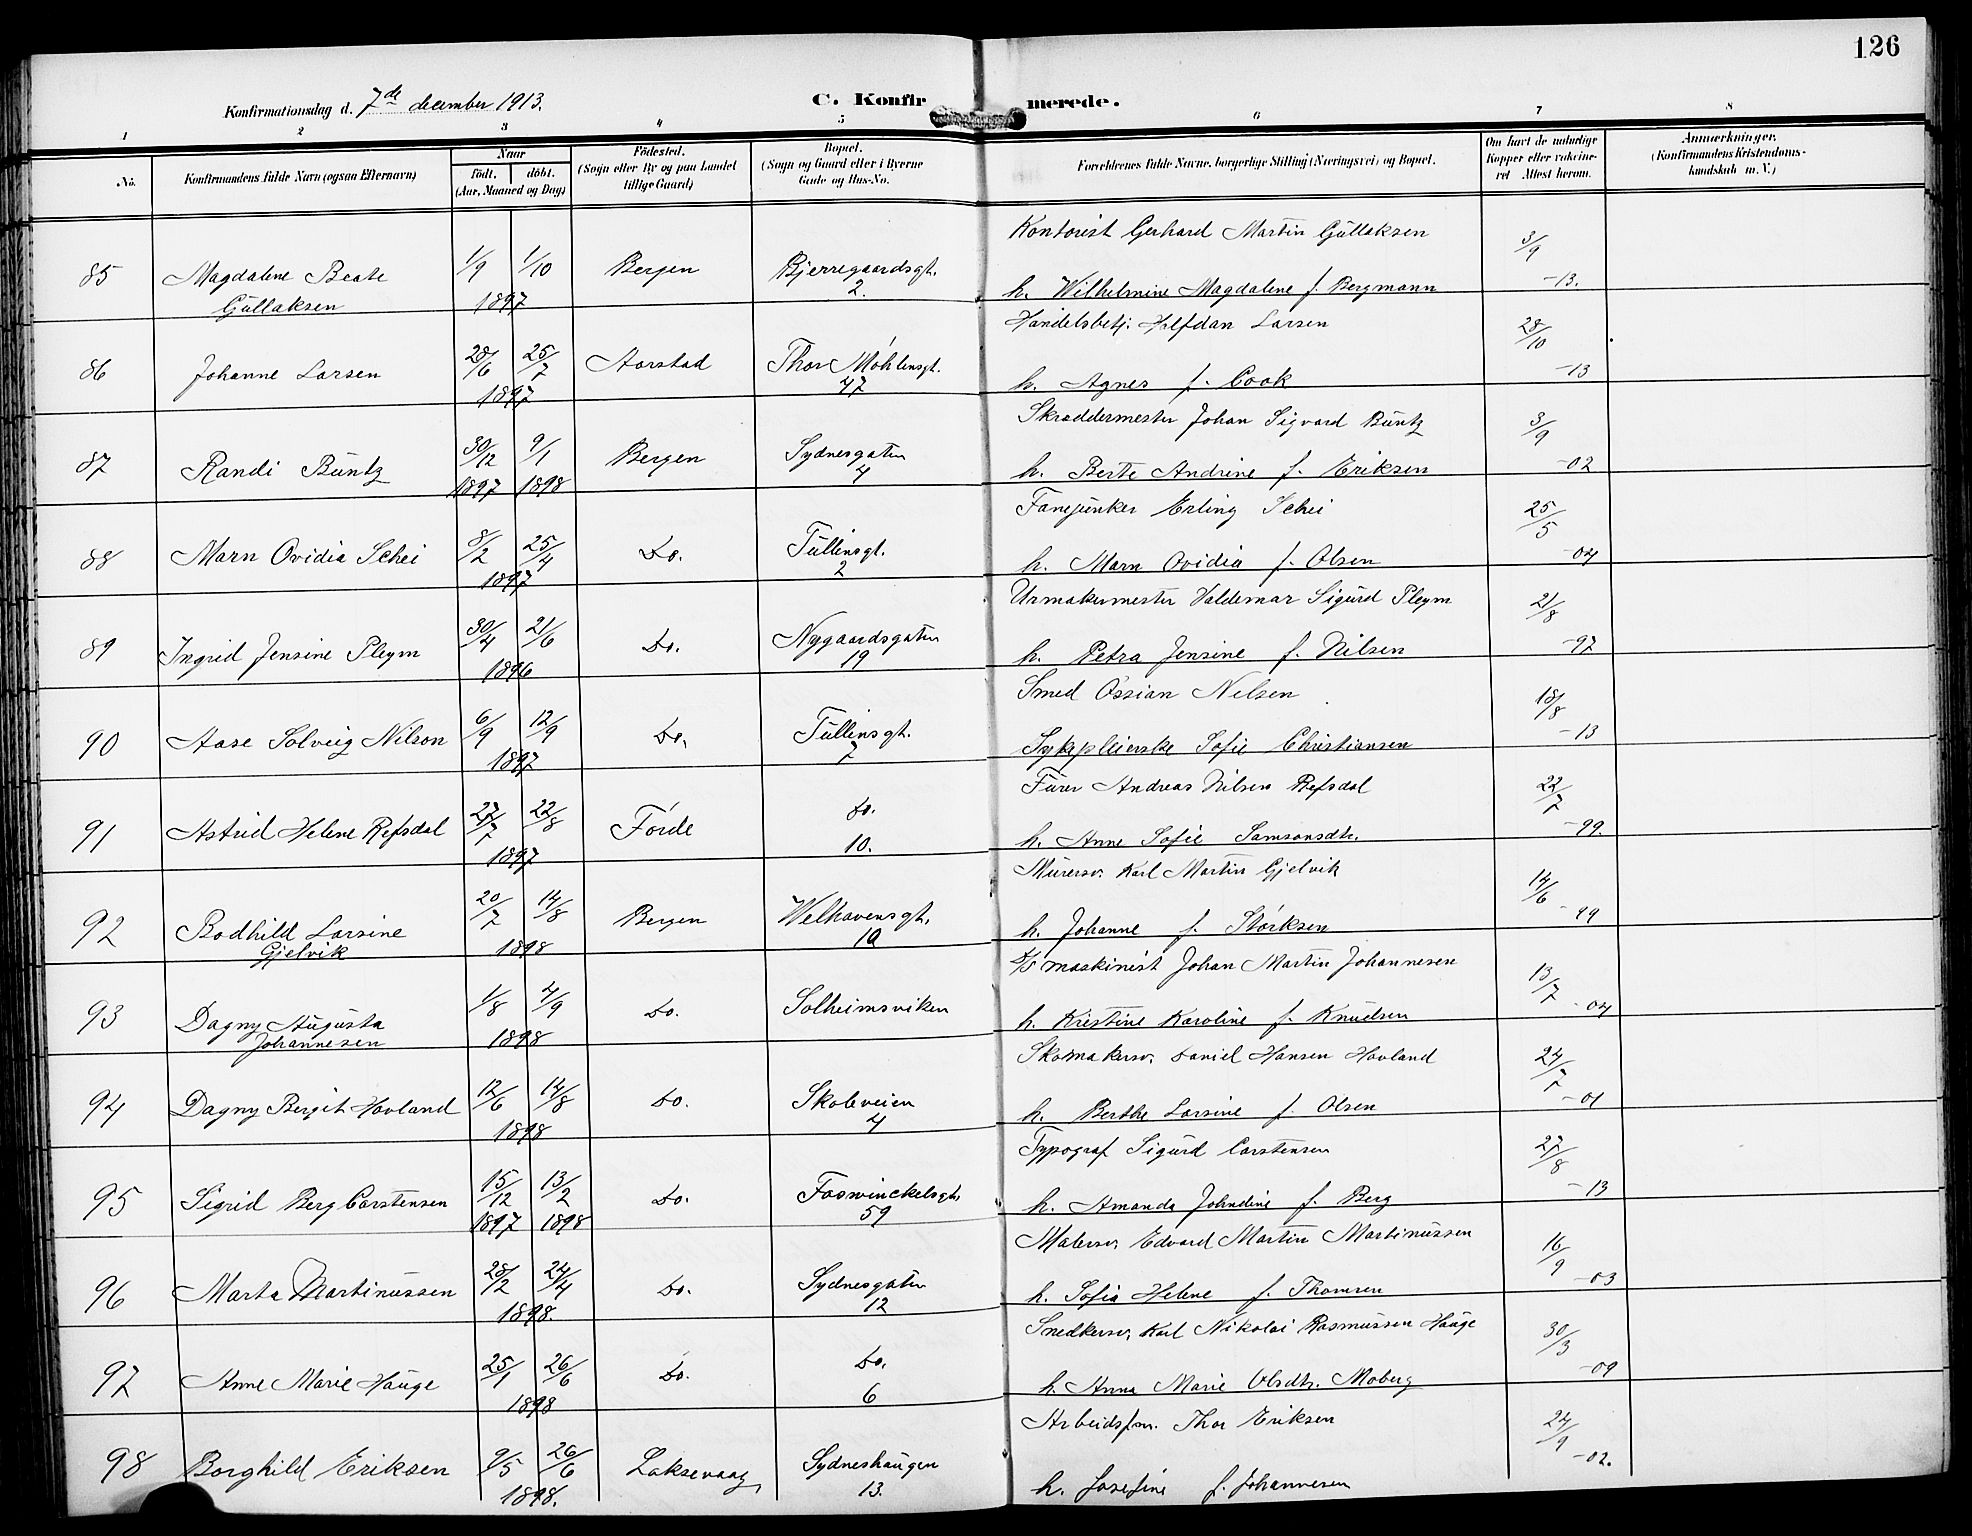 126
Konfirmationsdag d. 7de december 1913.
C. Konfirmerede.
1 2 3 4 5 6 7 8
No. Konfirmandens fulde Navn (ogsaa Efternavn)
Naar
født. døbt.
(Aar, Maaned og Dag)
Fødested.
(Sogn eller By og paa Landet
tillige Gaard)
Bopæl.
(Sogn og Gaard eller i Byerne
Gade og Hus-No.
Forældrenes fulde Navne, borgerlige Stilling (Næringsvei) og Bopæl.
Om havt de naturlige
Kopper eller vaccine-
ret Attest herom.
Anmærkninger.
(Konfirmandens Kristendoms-
kundskab m. V.)
Kontorist Gerhard Martin Gullaksen 3/9
85 Magdalene Beate 1/9 1/10 Bergen Bjerregaardsgt.
Gullaksen 1897 2. h. Wilhelmine Magdalene f. Bergmann -13.
Handelsbetj. Halfdan Larsen 28/10
86 Johanne Larsen 28/6 25/7 Aarstad Thor Møhlensgt.
1897 47 h. Agnes f. Cook -13
Skræddermester Johan Sigvard Buntz 3/9
87 Randi Buntz 30/12 9/1 Bergen Sydnesgaten
1897 1898 4 h. Berte Andrine f. Eriksen -02
Fanejunker Erling Schei 25/5
88 Marn Ovidia Schei 8/2 25/4 Do. Tullinsgt.
1897 2 h. Marn Ovidia f. Olsen -04
Urmakermester Valdemar Sigurd Pleym 21/8
89 Ingrid Jensine Pleym 30/4 21/6 Do. Nygaardsgaten
1896 19 h. Petra Jensine f. Nilsen -97
Smed Ossian Nelsen 18/8
90 Aase Solveig Nilson 6/9 12/9 Do. Tullinsgt.
1897 7 Sykepleierske Sofie Christiansen -13
Furer Andreas Nilsen Refsdal 22/7
91 Astrid Helene Refsdal 27/7 22/8 Førde Do.
1897 10. h. Anne Sofie Samsonsdtr. -99.
Murersv. Karl Martin Gjelvik 14/6
92 Bodhild Larsine 20/7 14/8 Bergen Welhavensgt.
Gjelvik 1898 10 h. Johanne f. Størksen -99
D/S maskinist Johan Martin Johannesen 13/7
93 Dagny Augusta 1/8 4/9 Do. Solheimsviken
Johannesen 1898 h. Kristine Karoline f. Knudsen -04
Skomakersv. Daniel Hansen Hovland 24/7
94 Dagny Bergit Hovland 12/6 14/8 Do. Skoleveien
1898 4 h. Berthe Larsine f. Olsen -01
Typograf Sigurd Carstensen 27/8
95 Sigrid Berg Carstensen 15/12 13/2 Do. Foswinckelsgt.
1897 1898 59 h. Amanda Johndine f. Berg -13
Malersv. Edvard Martin Martinussen 16/9
96 Marta Martinussen 28/2 24/4 Do. Sydnesgaten
1898. 12 h. Sofia Helene f. Thomsen -03
Snedkersv. Karl Nikolai Rasmussen Hauge 30/3
97 Anne Marie Hauge 25/1 26/6 Do. Do.
1898 6 h. Anna Marie Olsdtr. Moberg -09
Arbeidsfm. Thor Eriksen 24/9
98 Borghild Eriksen 9/5 26/6 Laksevaag Sydneshaugen
1898. 13. h. Josefine f. Johannesen -02.